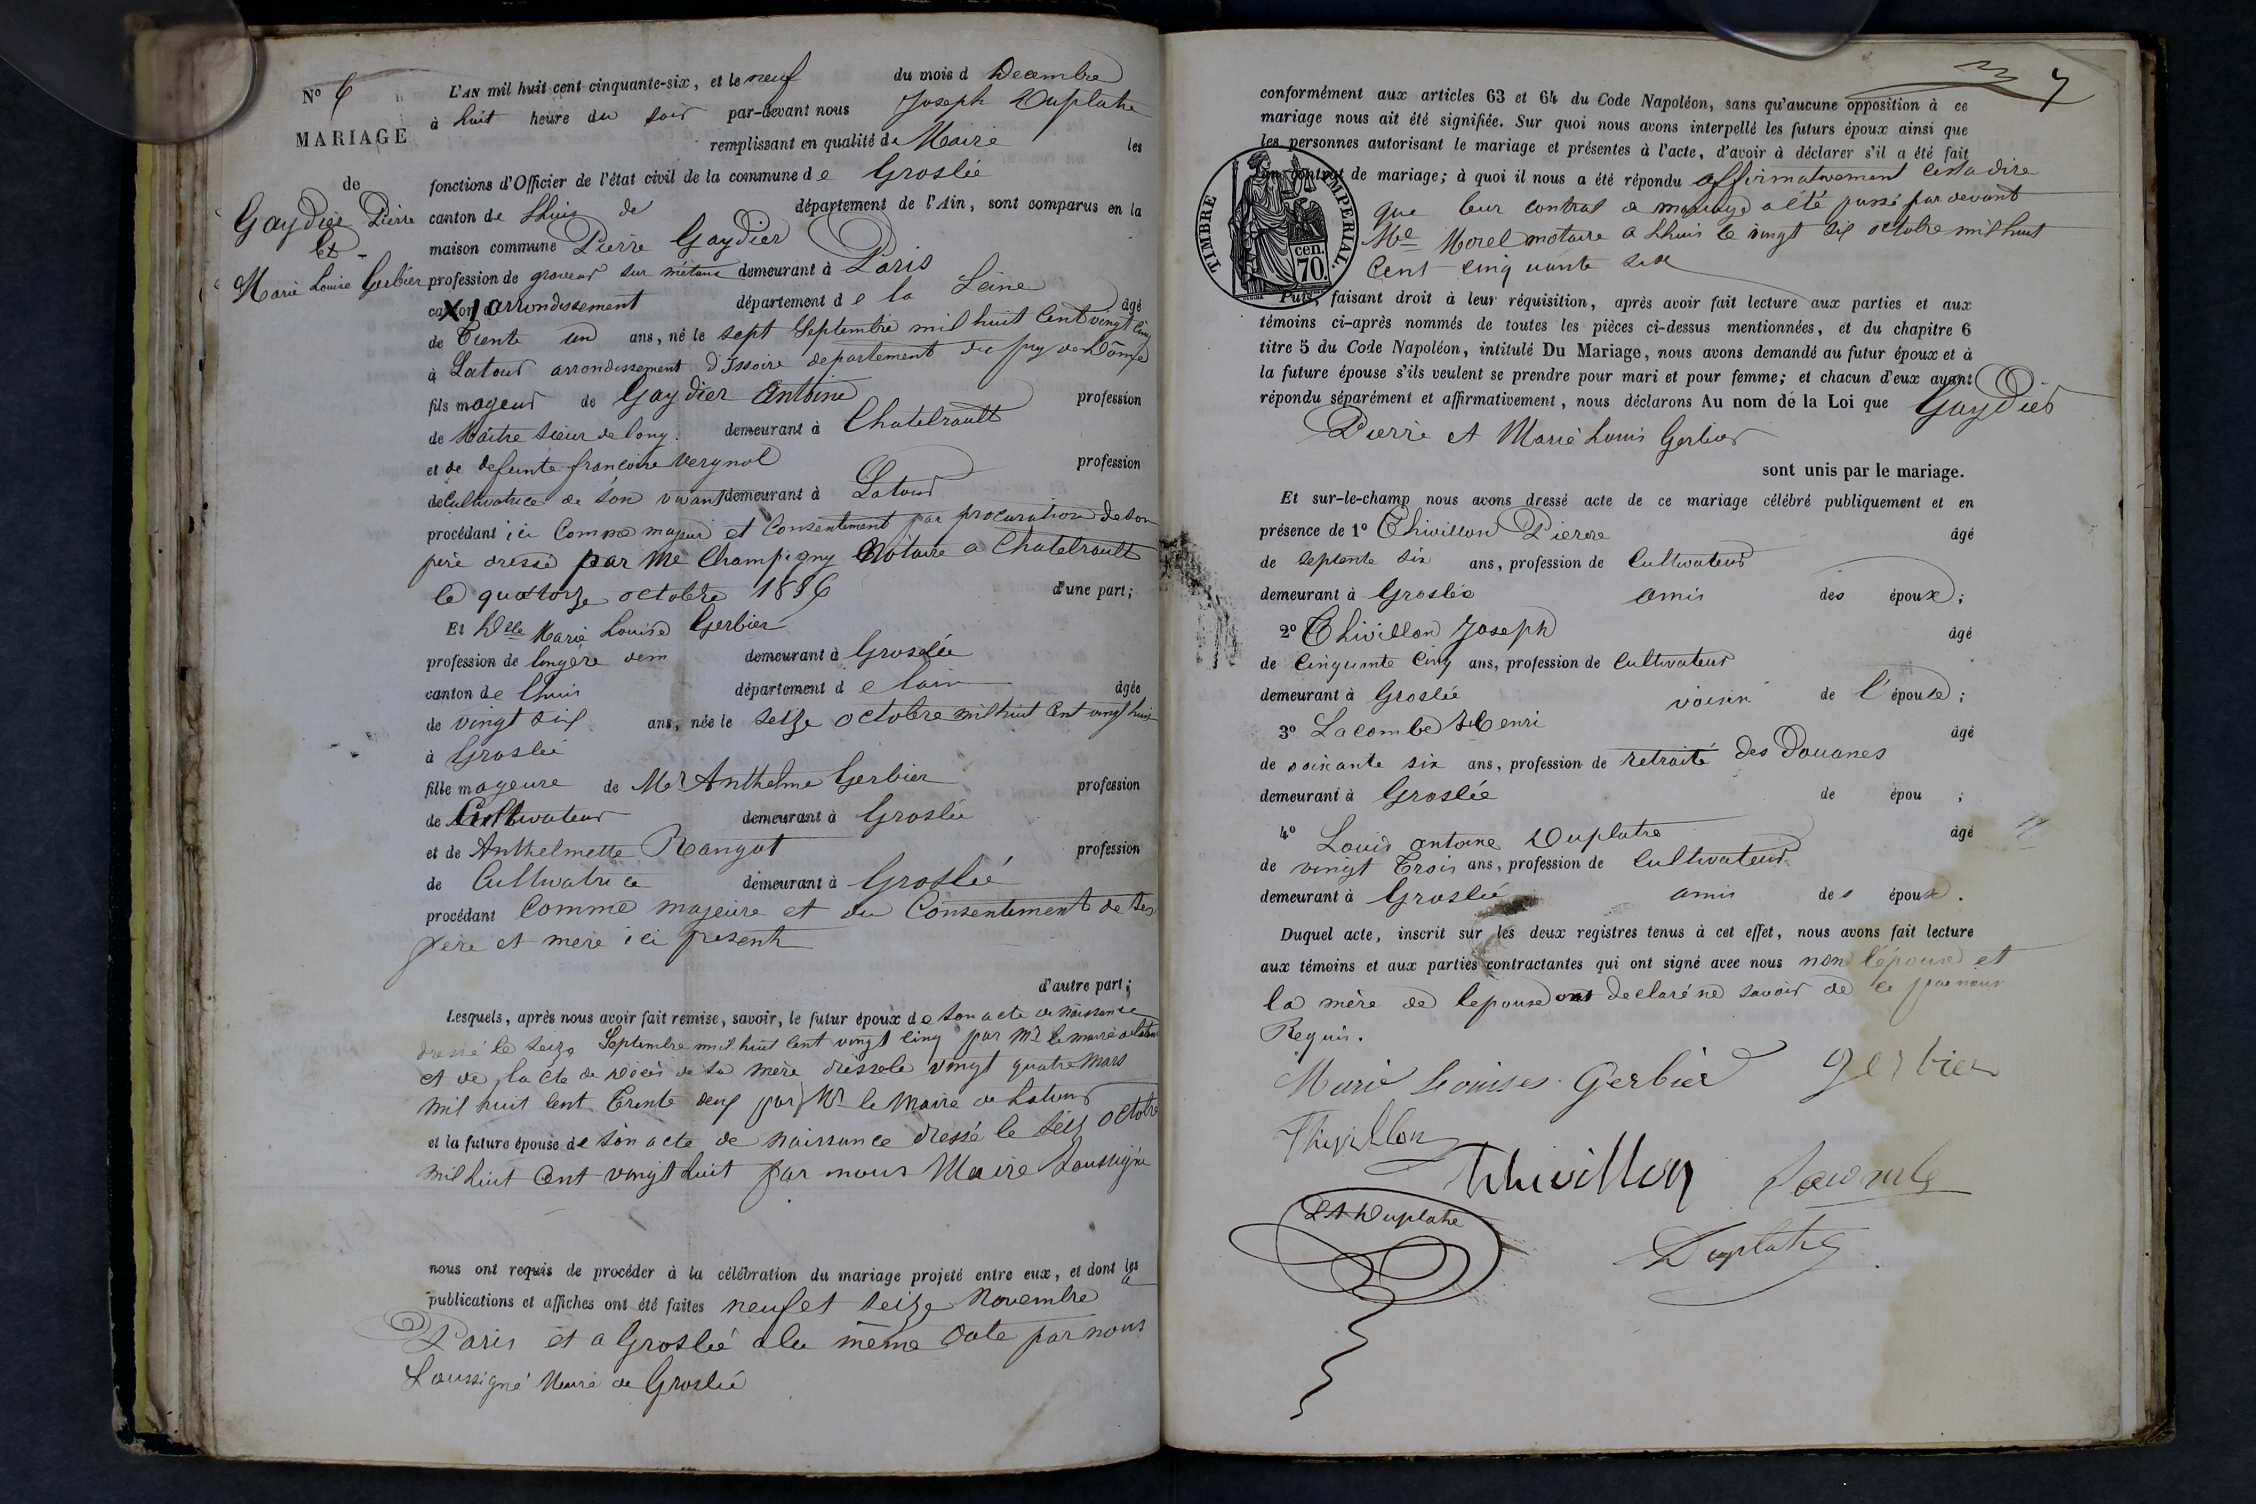 Nº 6
MARIAGE
de
Gaydier Pierre
Et
Marie Louise Gerbier
L'AN mil huit cent cinquante-six, et le neuf du mois d Decembre
à huit heure du soir par-devant nous Joseph Duplatre
remplissant en qualité de Maire les
fonctions d'Officier de l'état civil de la commune de Groslée
canton de Lhuis de département de l'Ain, sont comparus en la
maison commune Pierre Gaydier
profession de graveur sur métaux demeurant à Paris
canton d arrondissement département de la Seine âgé
de Trente un ans, né le sept Septembre mil huit Cent vingt cinq
à Latour arrondissement d'Issoire departement du puy de Dôme
fils mageur de Gaydier Antoine profession
de Maître Sieur de long. demeurant à Chatelrault
et de defunte francoise Vergnol profession
de Cultivatrice de son vivant demeurant à Latour
procédant ici Comme majeur et Consentement par procuration de son
père dressé par Me Champigny Notaire a Chatelrault
le quatorze octobre 1856 d'une part;
Et Dlle Marie Louise Gerbier
profession de lingère dem demeurant à Groslée
canton de Lhuis département de lain âgée
de vingt six ans, née le seize octobre mil huit Cent vingt huit
à Groslée
fille mageure de Mr Anthelme Gerbier profession
de Cultivateur demeurant à Groslée
et de Anthelmette Rangot profession
de Cultivatrice demeurant à Groslée
procédant Comme majeure et du Consentement de ses
père et mere ici present
d'autre part;
Lesquels, après nous avoir fait remise, savoir, le futur époux de son acte de Naissance
dressé le seize Septembre mil huit Cent vingt cinq par Mr le maire de Latour
et de lacte de Décès de sa mère dressé le vingt quatre Mars
mil huit Cent Trente deux par Mr le Maire de Latour
et la future épouse de son acte de naissance dressé le seize octobre
mil huit Cent vingt huit par nous Maire Soussigné
nous ont requis de procéder à la célébration du mariage projeté entre eux, et dont les
publications et affiches ont été faites neuf et seize Novembre a
Paris et a Groslée a la même date par nous
Soussigné Maire de Groslée
7
conformément aux articles 63 et 64 du Code Napoléon, sans qu'aucune opposition à ce
mariage nous ait été signifiée. Sur quoi nous avons interpellé les futurs époux ainsi que
les personnes autorisant le mariage et présentes à l'acte, d'avoir à déclarer s'il a été fait
un contrat de mariage; à quoi il nous a été répondu affirmativement Cest a dire
que leur contrat de mariage a été passé par devant
Me Morel notaire a Lhuis le vingt six octobre mil huit
Cent Cinquante six
TIMBRE IMPERIAL.
cen.
70.
Puis, faisant droit à leur réquisition, après avoir fait lecture aux parties et aux
témoins ci-après nommés de toutes les pièces ci-dessus mentionnées, et du chapitre 6
titre 5 du Code Napoléon, intitulé Du Mariage, nous avons demandé au futur époux et à
la future épouse s'ils veulent se prendre pour mari et pour femme; et chacun d'eux ayant
répondu séparément et affirmativement, nous déclarons Au nom de la Loi que Gaydier
Pierre et Marie Louis Gerbier
sont unis par le mariage.
Et sur-le-champ nous avons dressé acte de ce mariage célébré publiquement et en
présence de 1º Thivillon Pierre âgé
de septente six ans, profession de Cultivateur
demeurant à Groslée amis des époux;
2º Thivillon Joseph âgé
de Cinquante Cinq ans, profession de Cultivateur
demeurant à Groslée voisin de l'épouse;
3º Lacombe Henri âgé
de soixante six ans, profession de retraité des Douanes
demeurant à Groslée de épou ;
4º Louis antoine Duplatre âgé
de vingt Trois ans, profession de Cultivateur
demeurant à Groslée amis des époux.
Duquel acte, inscrit sur les deux registres tenus à cet effet, nous avons fait lecture
aux témoins et aux parties contractantes qui ont signé avec nous non l'épouse et
la mère de lepouse ont declaré ne savoir de ce par nous
Requis.
Marie Louises Gerbier gerbier
Thivillon
thivillon Lacombe
LA Duplatre
Duplatre